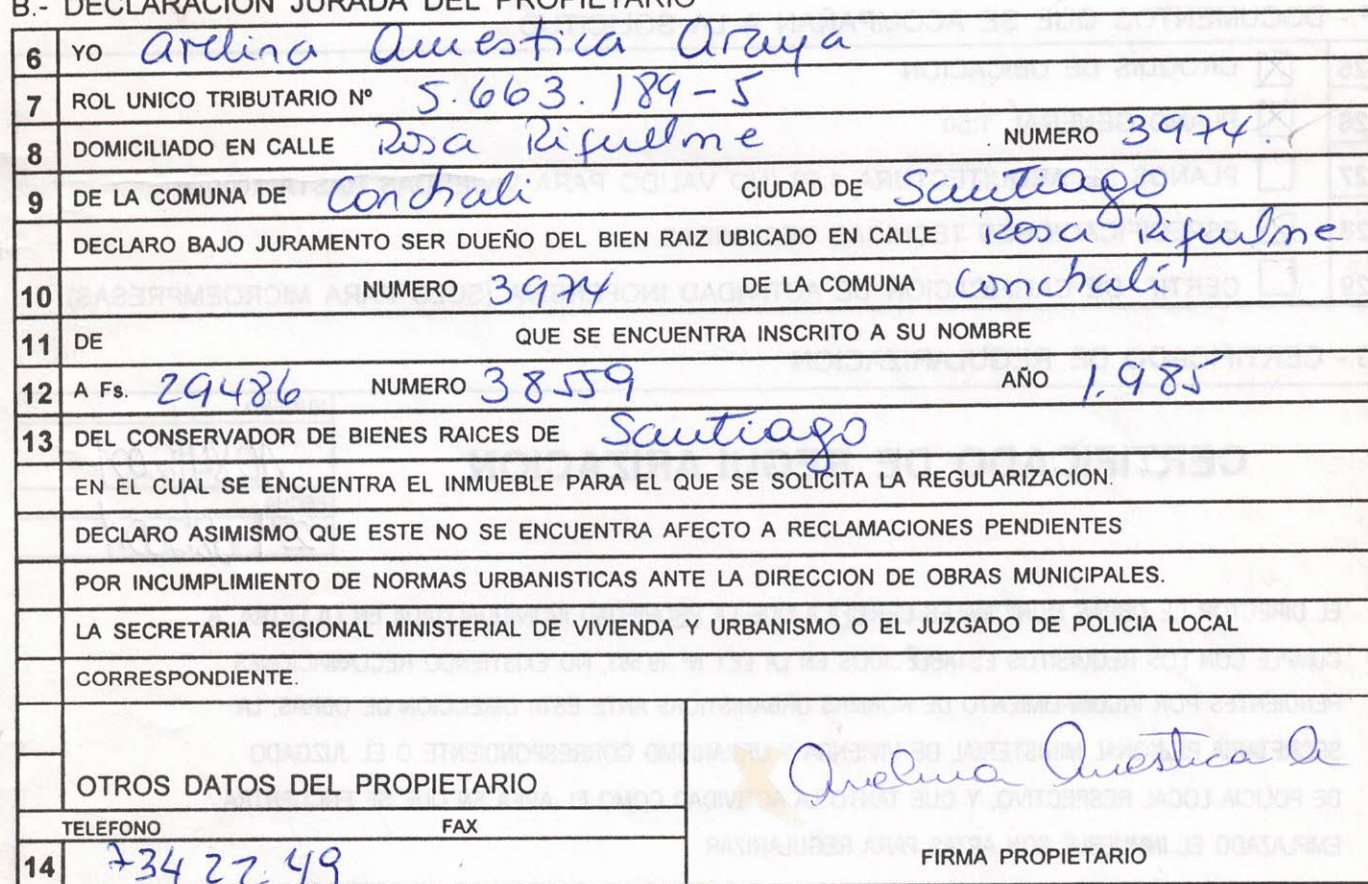 B.- DECLARACION JURADA DEL PROPIETARIO
6 YO Amestica Araya
7 ROL UNICO TRIBUTARIO Nº 5.663.189-5
8 DOMICILIADO EN CALLE Rosa Riquelme NUMERO 3974.
9 DE LA COMUNA DE Conchali CIUDAD DE Santiago
DECLARO BAJO JURAMENTO SER DUEÑO DEL BIEN RAIZ UBICADO EN CALLE Rosa Riquelme
10 NUMERO 3974 DE LA COMUNA Conchali
11 DE QUE SE ENCUENTRA INSCRITO A SU NOMBRE
12 A Fs. 29486 NUMERO 38559 AÑO 1.985
13 DEL CONSERVADOR DE BIENES RAICES DE Santiago
EN EL CUAL SE ENCUENTRA EL INMUEBLE PARA EL QUE SE SOLICITA LA REGULARIZACION.
DECLARO ASIMISMO QUE ESTE NO SE ENCUENTRA AFECTO A RECLAMACIONES PENDIENTES
POR INCUMPLIMIENTO DE NORMAS URBANISTICAS ANTE LA DIRECCION DE OBRAS MUNICIPALES.
LA SECRETARIA REGIONAL MINISTERIAL DE VIVIENDA Y URBANISMO O EL JUZGADO DE POLICIA LOCAL
CORRESPONDIENTE.
OTROS DATOS DEL PROPIETARIO
Amestica A
TELEFONO FAX
14 734 27.49
FIRMA PROPIETARIO